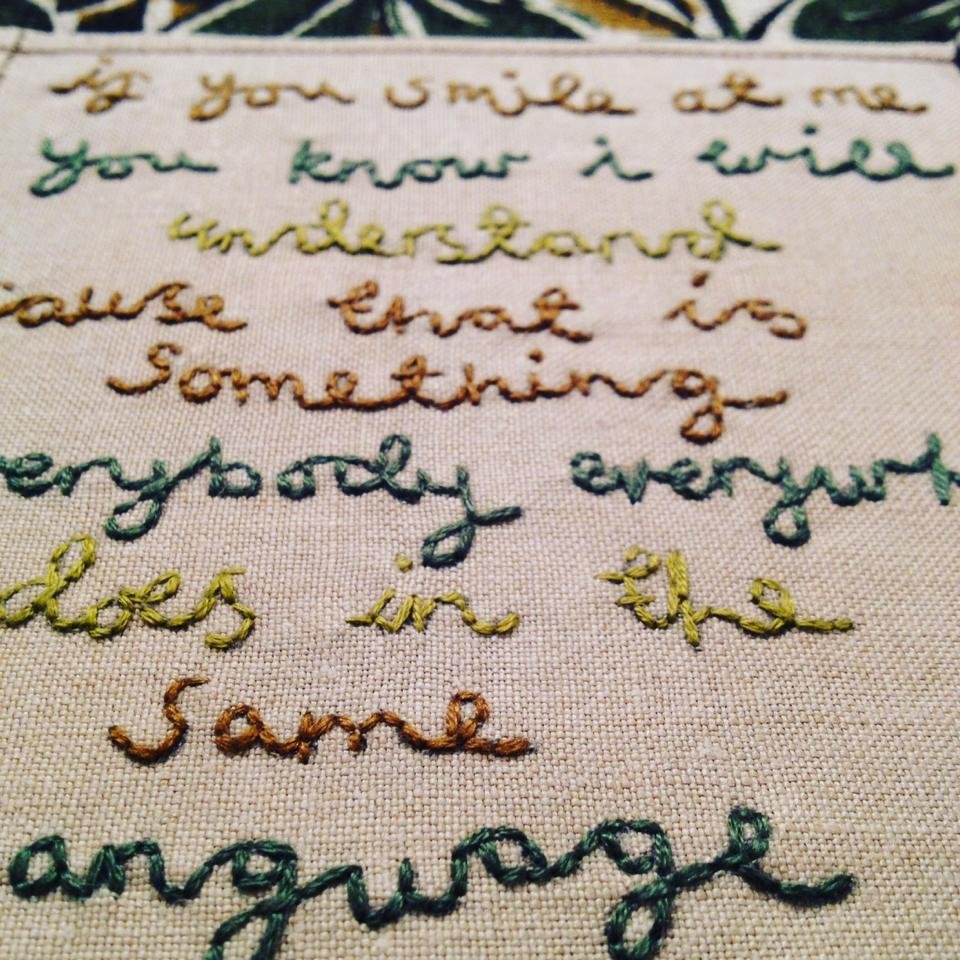 if you smile at me
you know i will
understand
cause that is
something
erybody everywh
does in the
same
anguage